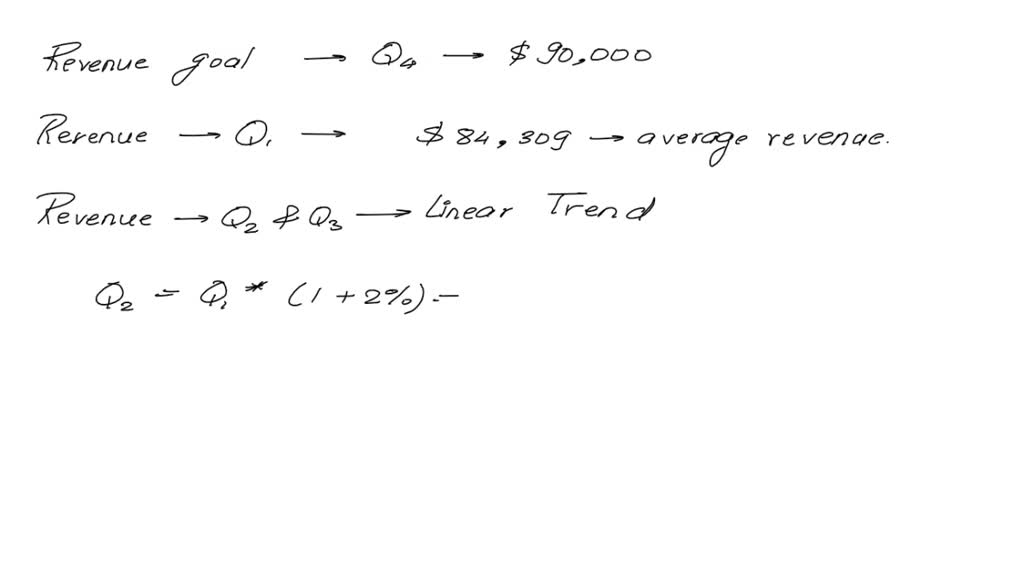 Revenue goal → Q4 → $90,000
Revenue → Q1 → $84,309 → average revenue.
Revenue → Q2 & Q3 → Linear Trend
Q2 = Q1 * (1 + 2%) =